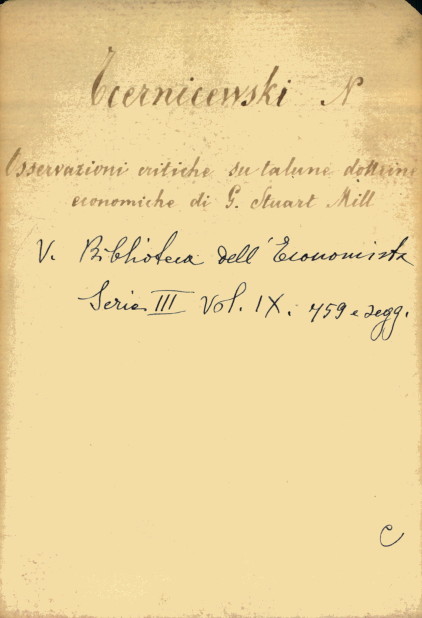 Tcernicewski N
Osservazioni critiche su talune dottrine
economiche di G. Stuart Mill
V. Biblioteca dell'Economista
Serie III Vol. IX. 759 e segg.
C